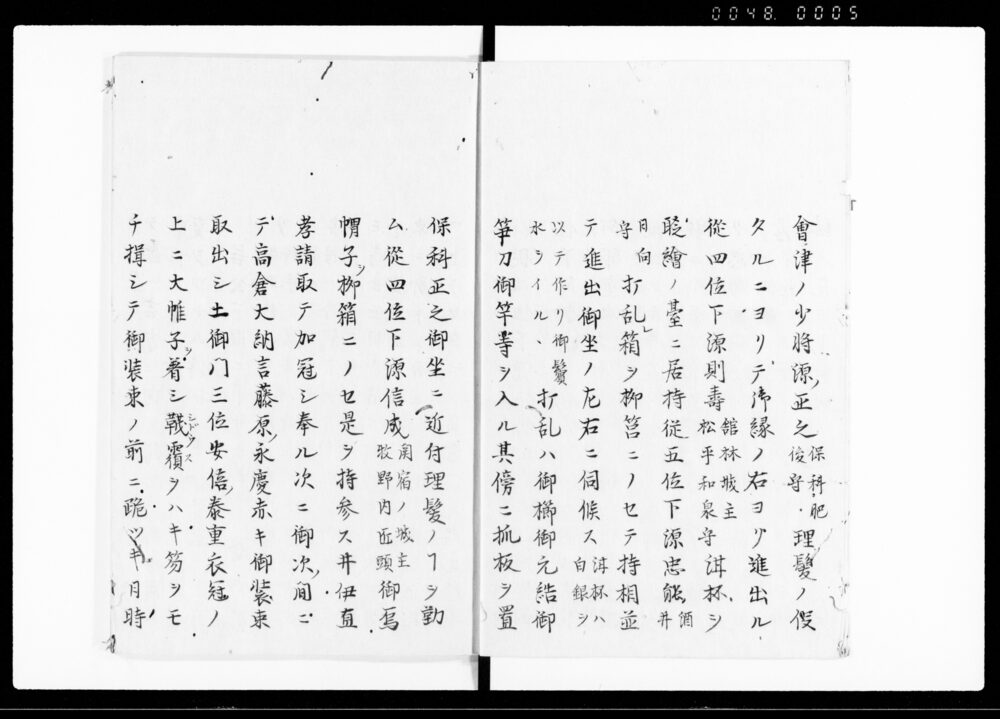 0048. 0005
會津ノ少將源正之保科肥後守理髮ノ役
タルニヨリテ御縁ノ右ヨリ進出ル
從四位下源則壽舘林城主松平和泉守泔杯ヲ
蒔繪ノ臺ニ居持從五位下源忠能酒井
日向守打乱箱ヲ柳筥ニノセテ持相並
テ進出御坐ノ左右ニ伺候ス泔杯ハ白銀ヲ
以テ作リ御鬢水ヲイルヽ打乱ハ御櫛御元結御
笄刀御竿等ヲ入ル其傍ニ抓板ヲ置
保科正之御坐ニ近付理髮ノヿヲ勤
ム從四位下源信成関宿ノ城主牧野内匠頭御烏
帽子ヲ柳箱ニノセ是ヲ持参ス井伊直
孝請取テ加冠シ奉ル次ニ御次ノ間ニ
テ高倉大納言藤原永慶赤キ御装束
取出シ土御门三位安倍泰重衣冠ノ
上ニ大帷子ヲ著シ戰霣ヲハキ笏ヲモ
チ揖シテ御装束ノ前ニ跪ツキ日時